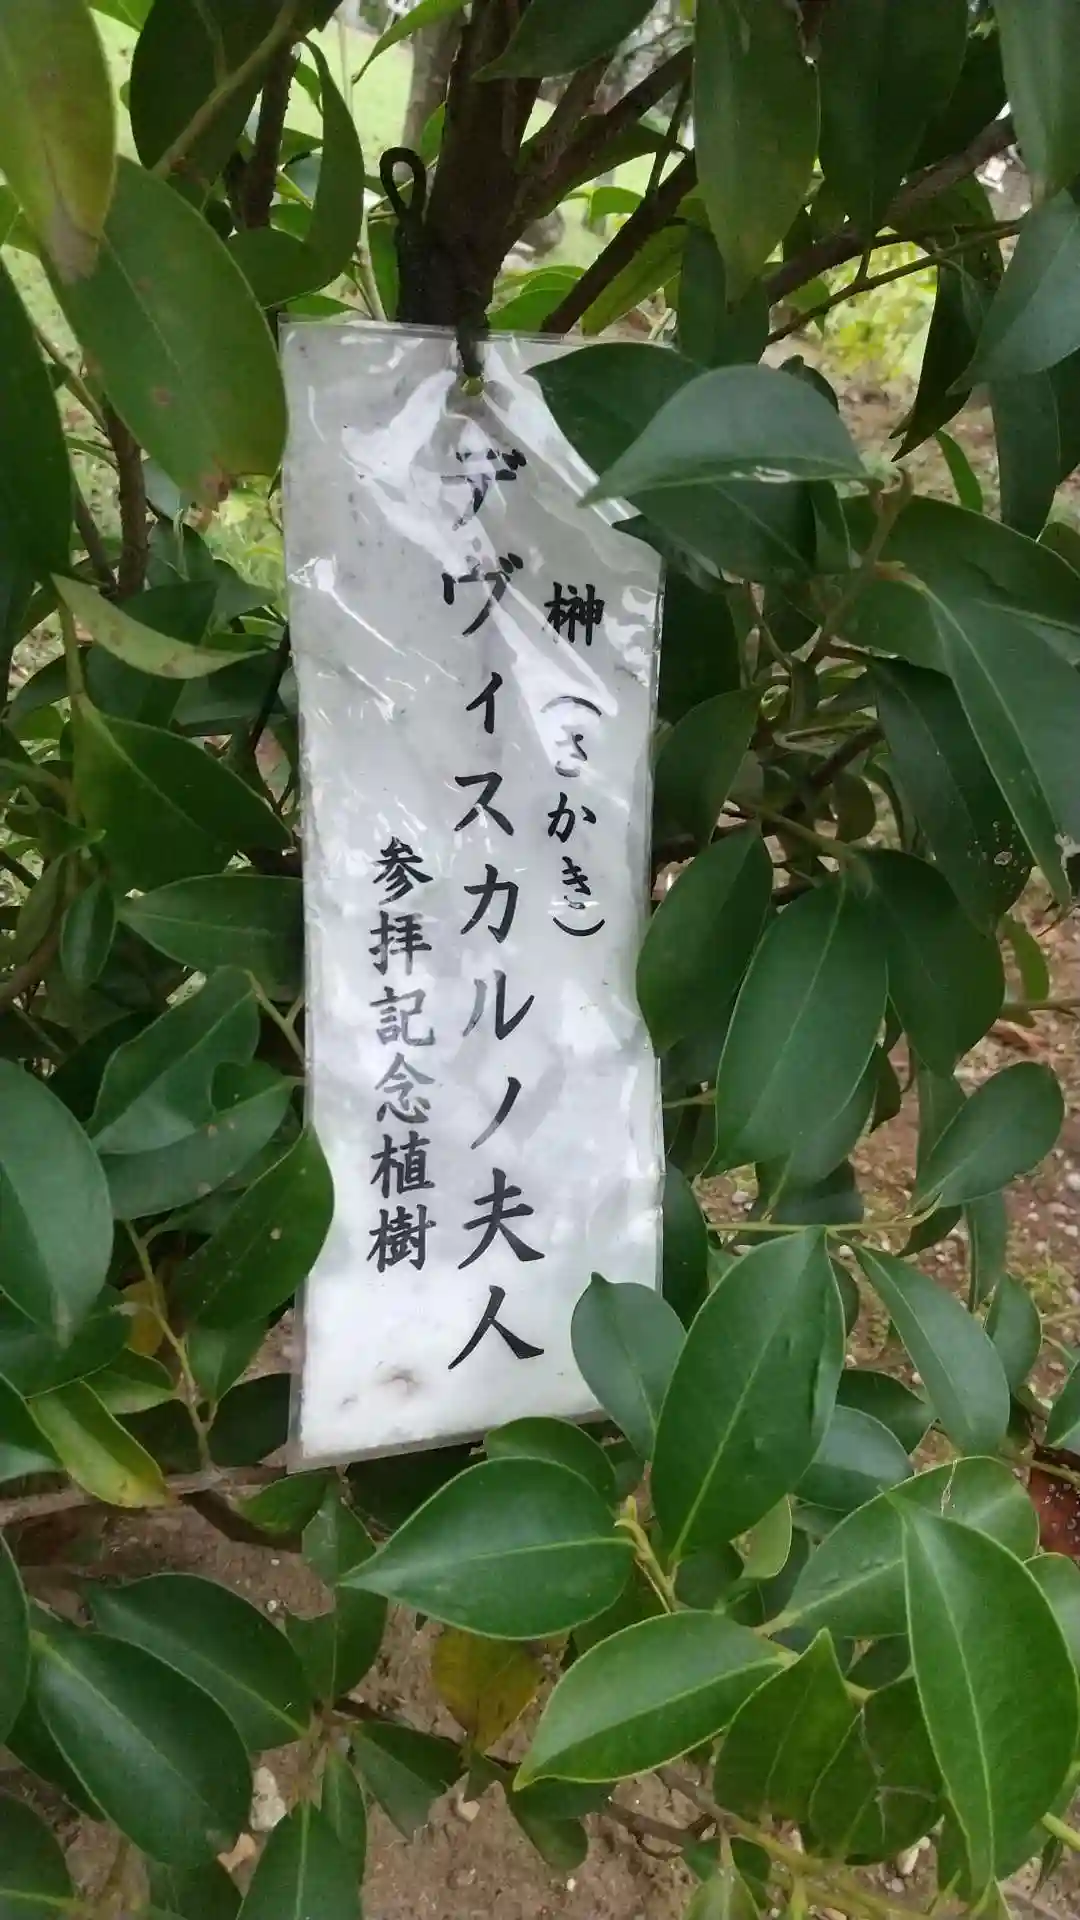 榊（さかき）
デヴィスカルノ夫人
参拝記念植樹